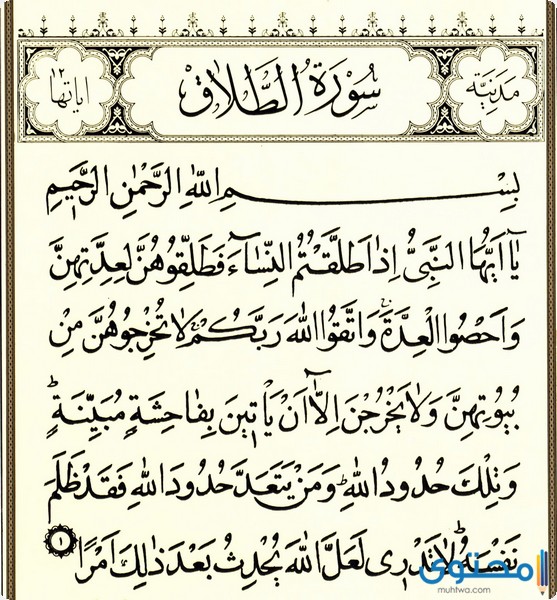 مدنية سُورَةُ الطَّلَاقِ اياتها ١٢
بِسْمِ اللّٰهِ الرَّحْمٰنِ الرَّحٖيمِ
يَٓا اَيُّهَا النَّبِىُّ اِذَا طَلَّقْتُمُ النِّسَٓاءَ فَطَلِّقُوهُنَّ لِعِدَّتِهِنَّ
وَاَحْصُوا الْعِدَّةَ وَاتَّقُوا اللّٰهَ رَبَّكُمْ لَا تُخْرِجُوهُنَّ مِنْ
بُيُوتِهِنَّ وَلَا يَخْرُجْنَ اِلَّٓا اَنْ يَاْتٖينَ بِفَاحِشَةٍ مُبَيِّنَةٍ ط
وَتِلْكَ حُدُودُ اللّٰهِ ط وَمَنْ يَتَعَدَّ حُدُودَ اللّٰهِ فَقَدْ ظَلَمَ
نَفْسَهُ ط لَا تَدْرٖى لَعَلَّ اللّٰهَ يُحْدِثُ بَعْدَ ذٰلِكَ اَمْرًا ١
محتوى
muhtwa.com